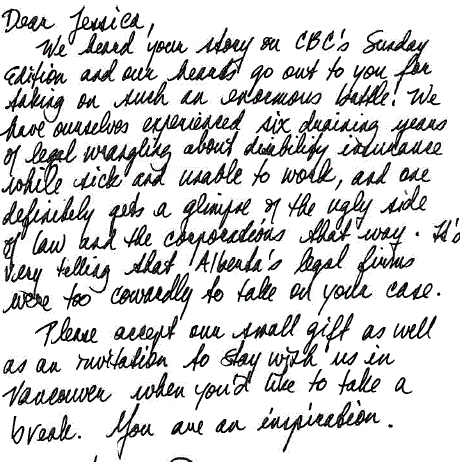 Dear Jessica,
We heard your story on CBC's Sunday
Edition and our hearts go out to you for
taking on such an enormous battle! We
have ourselves experienced six draining years
of legal wrangling about disability insurance
while sick and unable to work, and one
definitely gets a glimpse of the ugly side
of law and the corporations that way. It's
very telling that Alberta's legal firms
were too cowardly to take on your case.
Please accept our small gift as well
as an invitation to stay with us in
Vancouver when you'd like to take a
break. You are an inspiration.